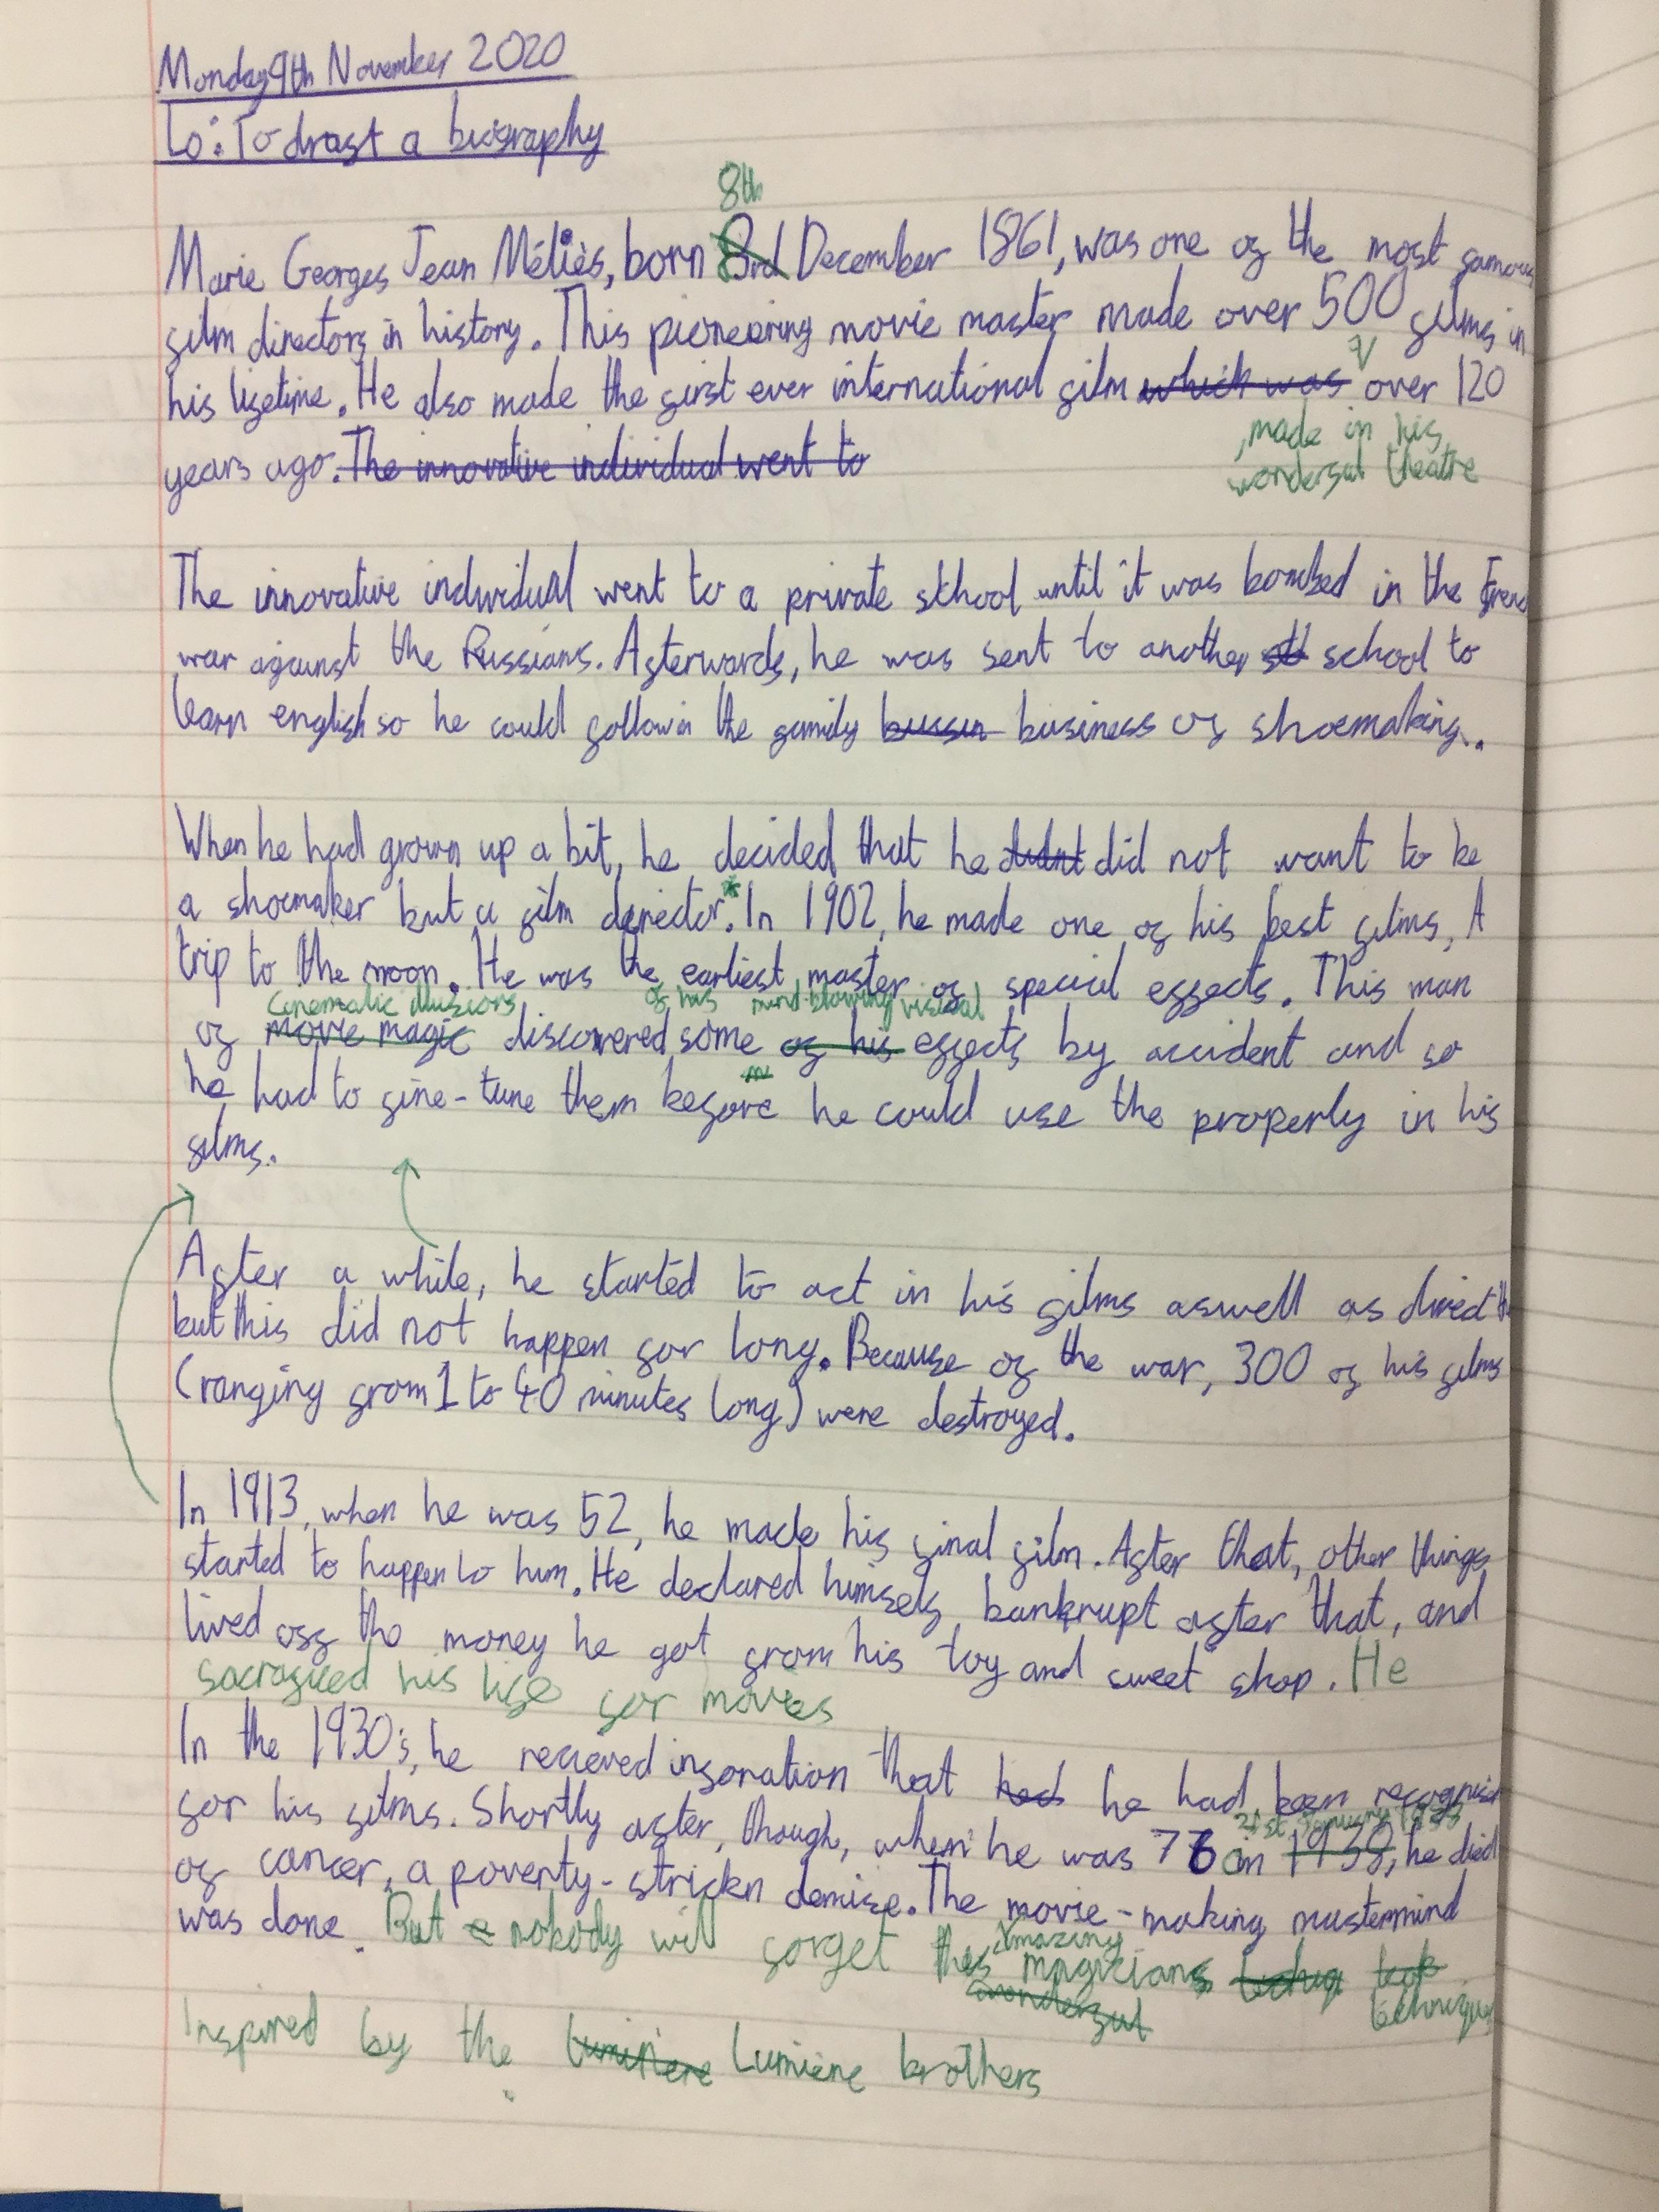 Monday 9th November 2020
Lo: To draft a biography
8th
Marie Georges Jean Méliès, born 3rd December 1861, was one of the most famous
film directors in history. This pioneering movie master made over 500 films in
his lifetime. He also made the first ever international film which was over 120
, made in his
wonderful theatre
years ago. The innovative individual went to
The innovative individual went to a private school until it was bombed in the
war against the Russians. Afterwards, he was sent to another school to
learn english so he could follow in the family bussin business of shoemaking.
When he had grown up a bit, he decided that he didnt did not want to be
a shoemaker but a film director*. In 1902, he made one of his best films, A
trip to the moon. He was the earliest master of special effects. This man
cinematic illusions of his mind-blowing visual
of movie magic discovered some of his effects by accident and so
he had to fine-tune them before he could use the properly in his
films.
After a while, he started to act in his films aswell as direct
but this did not happen for long. Because of the war, 300 of his films
(ranging from 1 to 40 minutes long) were destroyed.
In 1913, when he was 52, he made his final film. After that, other things
started to happen to him. He declared himself bankrupt after that, and
lived off the money he got from his toy and sweet shop. He
sacrafised his life for movies
In the 1930's, he recieved infomation that had he had been
for his films. Shortly after, though, when he was 76 in 1938, he died
21st January
of cancer, a poverty-strickn demise. The movie-making mastermind
was done. But nobody will forget this magicians
amazing
wonderful
techniques
Inspired by the Lumiere Lumière brothers